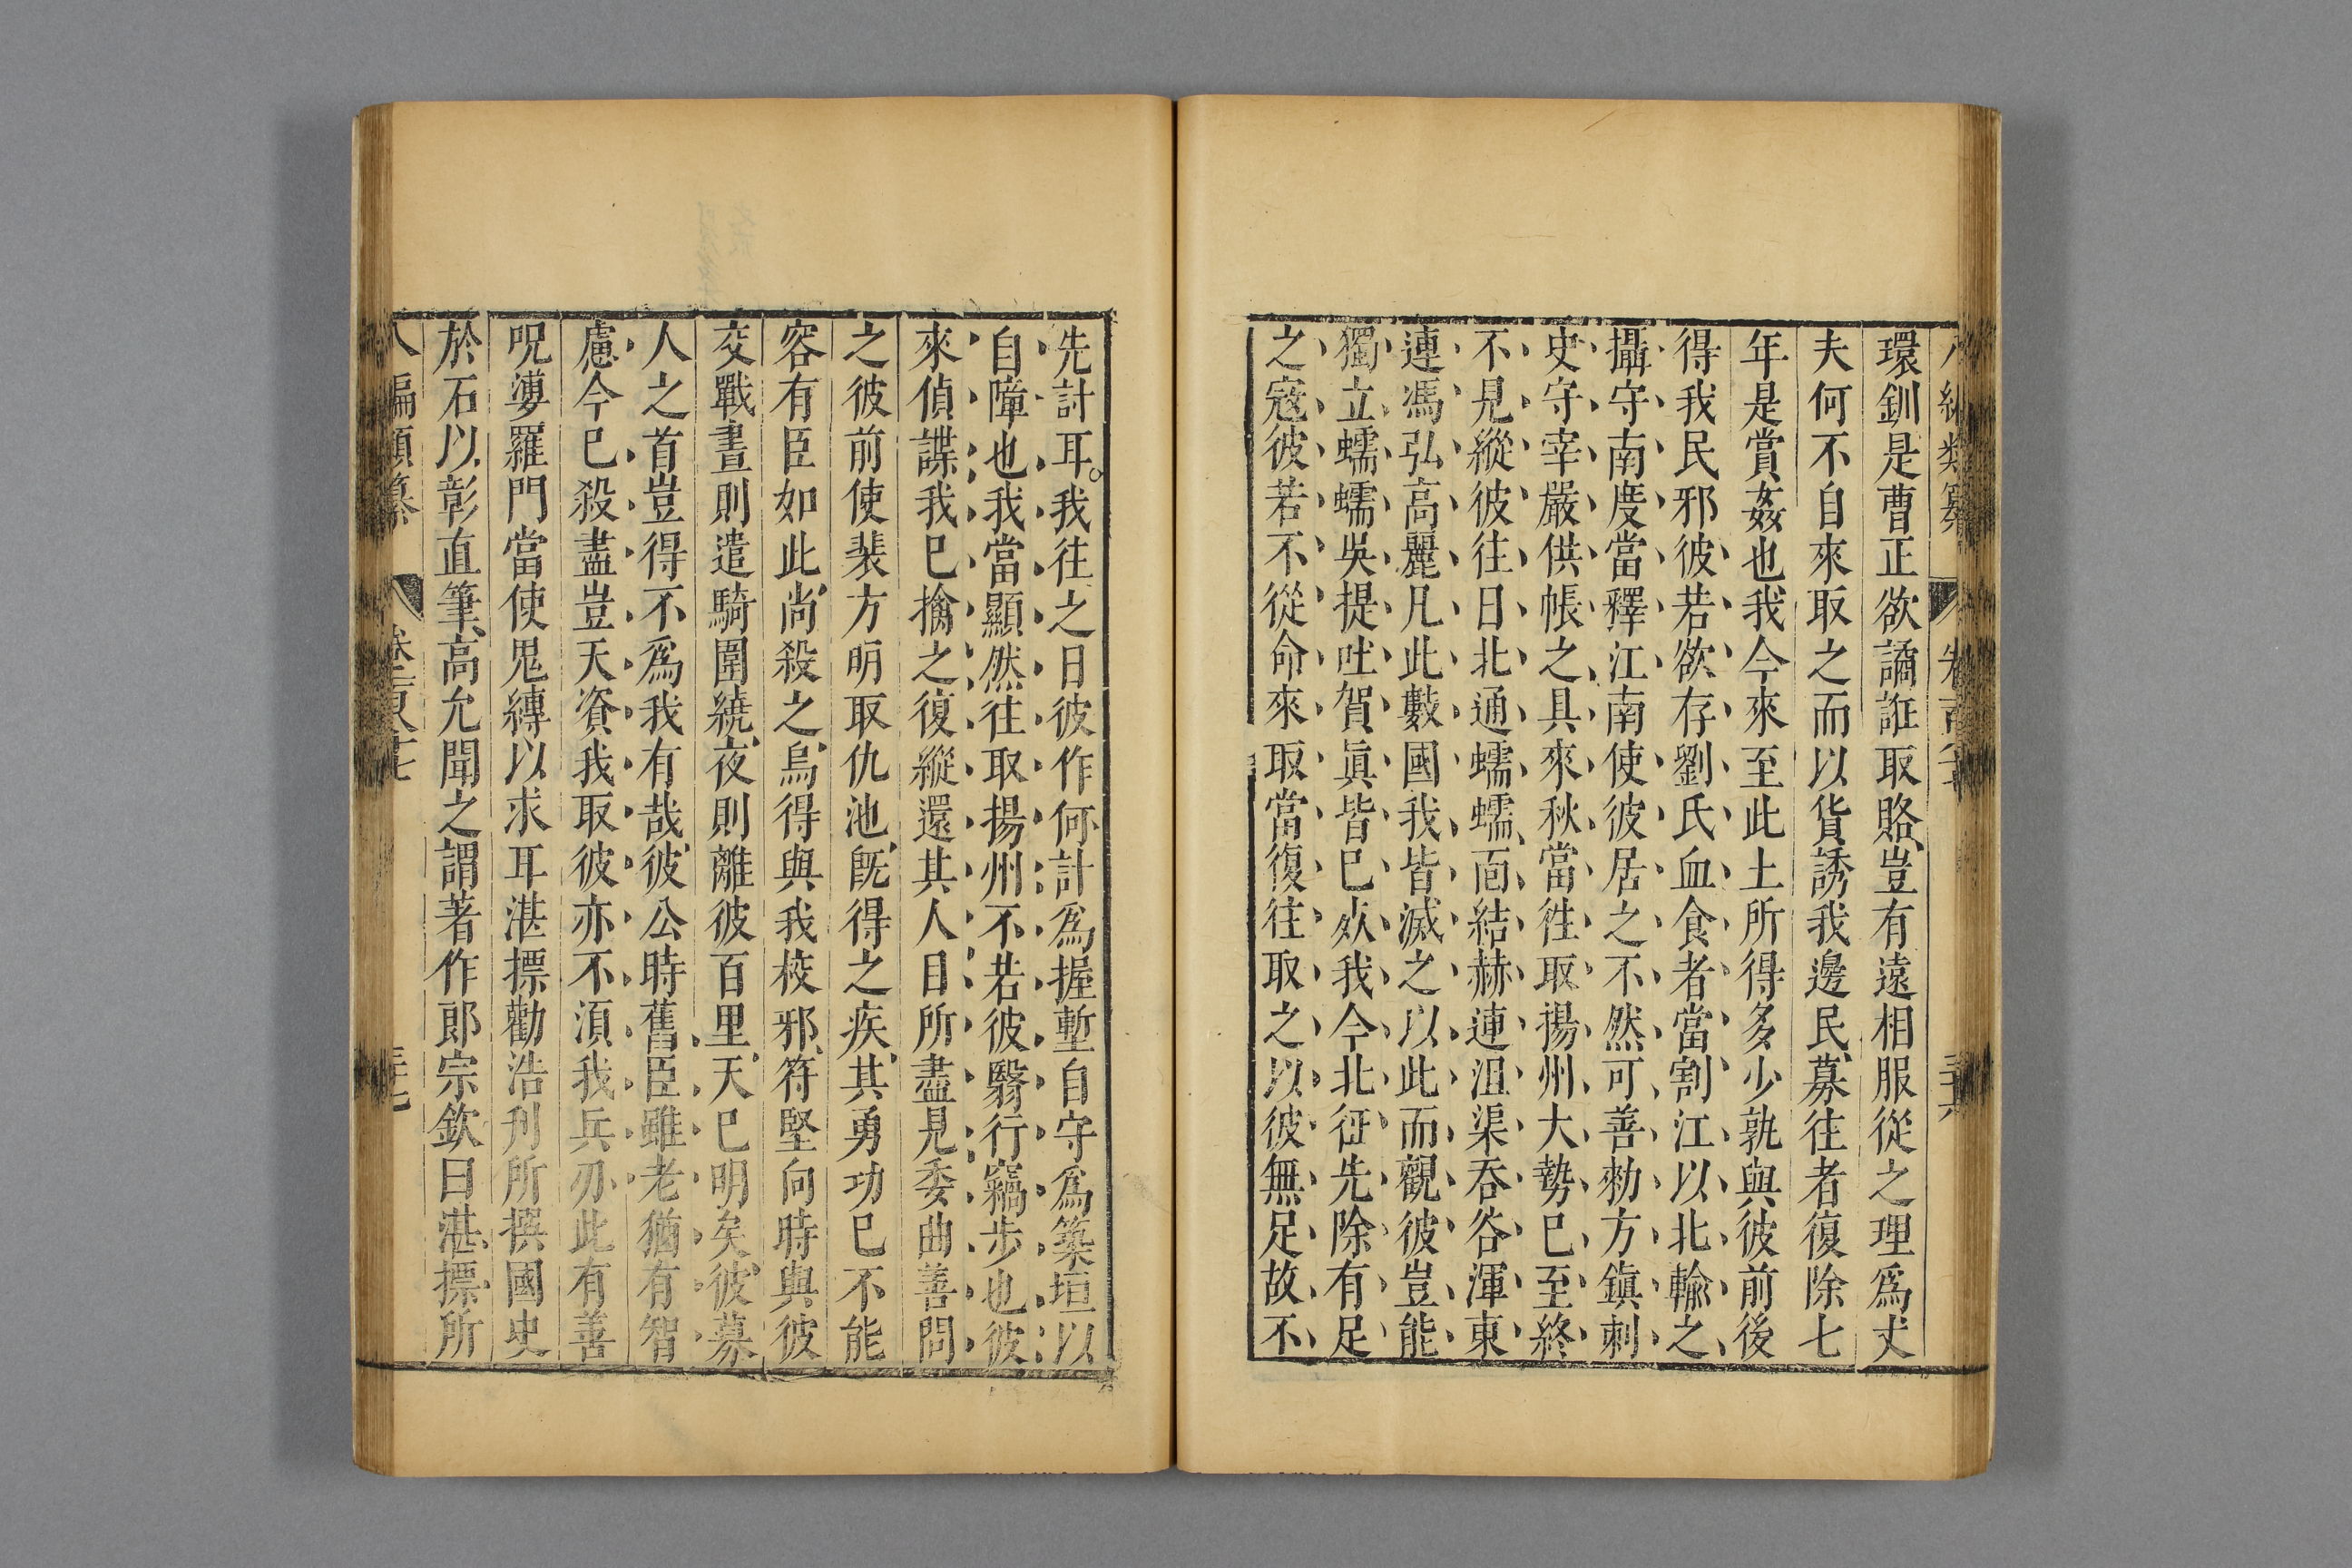 環釧是曹正欲譎誑取賂豈有遠相服從之理爲丈
夫何不自來取之而以貨誘我邊民募往者復除七
年是賞姦也我今來至此土所得多少孰與彼前後
得我民邪彼若欲存劉氏血食者當割江以北輸之
攝守南度當釋江南使彼居之不然可善勑方鎮刺
史守宰嚴供帳之具來秋當徃取揚州大勢已至終
不見縱彼往日北通蠕蠕西結赫連沮渠吞谷渾東
連馮弘高麗凡此數國我皆滅之以此而觀彼豈能
獨立蠕蠕吳提吐賀眞皆已死我今北征先除有足
之寇彼若不從命來取當復往取之以彼無足故不
先計耳。我往之日彼作何計爲握塹自守爲築垣以
自障也我當顯然往取揚州不若彼翳行竊步也彼
來偵諜我已擒之復縱還其人目所盡見委曲善問
之彼前使裴方明取仇池旣得之疾其勇功已不能
容有臣如此尚殺之烏得與我校邪符堅向時與彼
交戰晝則遣騎圍繞夜則離彼百里天已明矣彼募
人之首豈得不爲我有哉彼公時舊臣雖老猶有智
慮今已殺盡豈天資我取彼亦不須我兵刃此有善
呪婆羅門當使鬼縛以求耳湛摽勸浩刋所撰國史
於石以彰直筆高允聞之謂著作郎宗欽曰湛摽所